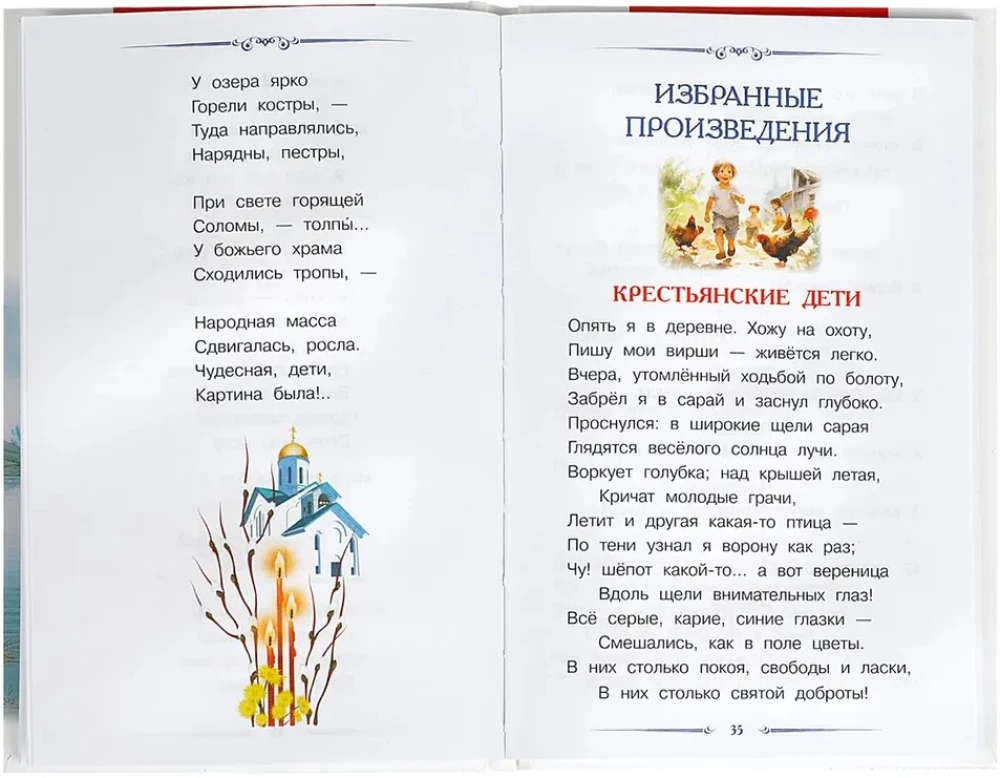 У озера ярко
Горели костры, —
Туда направлялись,
Нарядны, пестры,
При свете горящей
Соломы, — толпы́...
У божьего храма
Сходились тропы, —
Народная масса
Сдвигалась, росла.
Чудесная, дети,
Картина была!..
ИЗБРАННЫЕ
ПРОИЗВЕДЕНИЯ
КРЕСТЬЯНСКИЕ ДЕТИ
Опять я в деревне. Хожу на охоту,
Пишу мои вирши — живётся легко.
Вчера, утомлённый ходьбой по болоту,
Забрёл я в сарай и заснул глубоко.
Проснулся: в широкие щели сарая
Глядятся весёлого солнца лучи.
Воркует голубка; над крышей летая,
Кричат молодые грачи,
Летит и другая какая-то птица —
По тени узнал я ворону как раз;
Чу! шёпот какой-то... а вот вереница
Вдоль щели внимательных глаз!
Всё серые, карие, синие глазки —
Смешались, как в поле цветы.
В них столько покоя, свободы и ласки,
В них столько святой доброты!
35